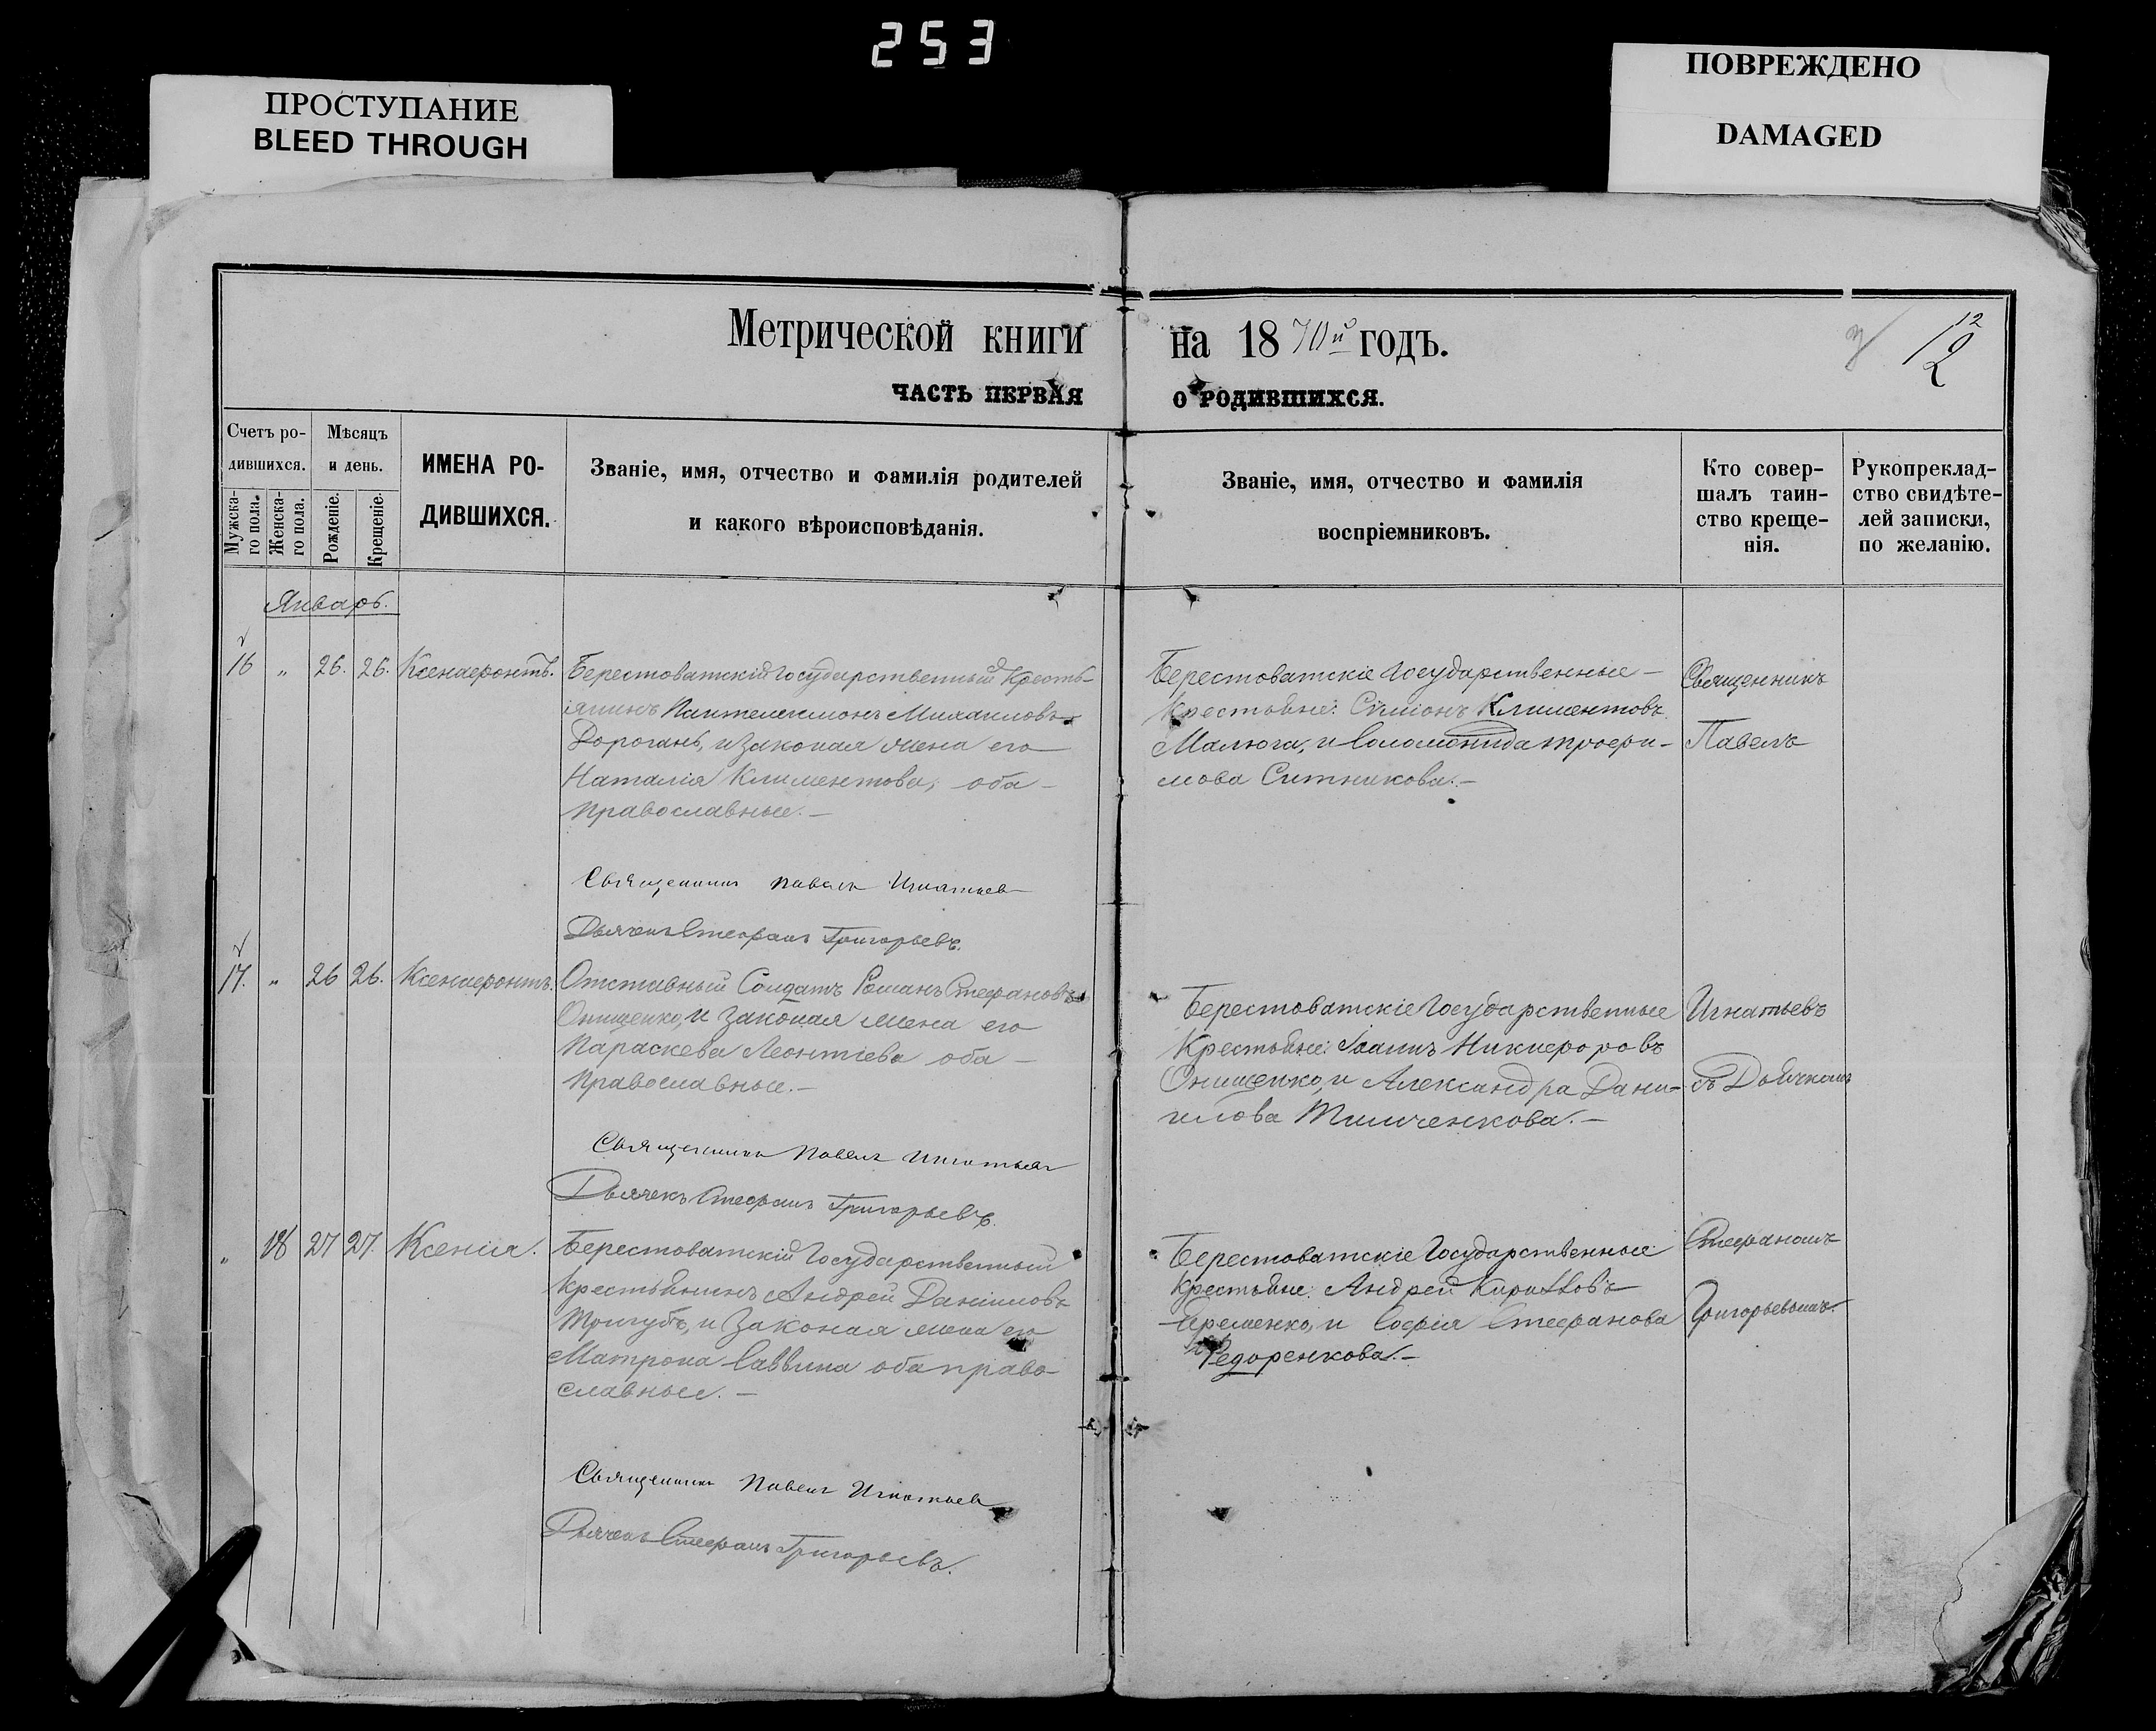 253
ПРОСТУПАНИЕ
BLEED THROUGH
ПОВРЕЖДЕНО
DAMAGED
Метрической книги на 1870й годъ.
12
12
ЧАСТЬ ПЕРВАЯ О РОДИВШИХСЯ.
Счетъ ро-
дившихся.
Мужска-
го пола.
Женска-
го пола.
Мѣсяцъ
и день.
Рожденіе.
Крещеніе.
ИМЕНА РО-
ДИВШИХСЯ.
Званіе, имя, отчество и фамилія родителей
и какого вѣроисповѣданія.
Званіе, имя, отчество и фамилія
воспріемниковъ.
Кто совер-
шалъ таин-
ство креще-
нія.
Рукопреклад-
ство свидѣте-
лей записки,
по желанію.
Январь.
16 „ 26. 26. Ксенофонтъ.
Берестоватскій Государственный Кресть-
янинъ Пантелеимонъ Михаиловъ
Дорогань, и законая жена его
Наталія Климентова, оба —
православные. —
Священникъ Павелъ Игнатьевъ
Дьячекъ Стефанъ Григорьевъ.
Берестоватскіе Государственные —
Крестьяне: Симіонъ Климентовъ
Малюга, и Соломонида Трофи-
мова Ситникова. —
Священникъ
Павелъ
17. „ 26 26. Ксенофонтъ.
Отставный Солдатъ Романъ Стефановъ
Онищенко, и законая жена его
Параскева Леонтіева оба —
православные. —
Священникъ Павелъ Игнатьевъ
Дьячекъ Стефанъ Григорьевъ.
Берестоватскіе Государственные
Крестьяне: Іоаннъ Никифоровъ
Онищенко, и Александра Дани-
илова Тимченкова. —
Игнатьевъ
съ Дьячкомъ
„ 18 27 27. Ксенія.
Берестоватскій Государственный
Крестьянинъ Андрей Даніиловъ
Тригубъ, и законая жена его
Матрона Саввина оба право-
славные. —
Священникъ Павелъ Игнатьевъ
Дьячекъ Стефанъ Григорьевъ.
Берестоватскіе Государственные
Крестьяне: Андрей Кирилловъ
Яременко, и Софія Стефанова
Федоренкова. —
Стефаномъ
Григорьевымъ.